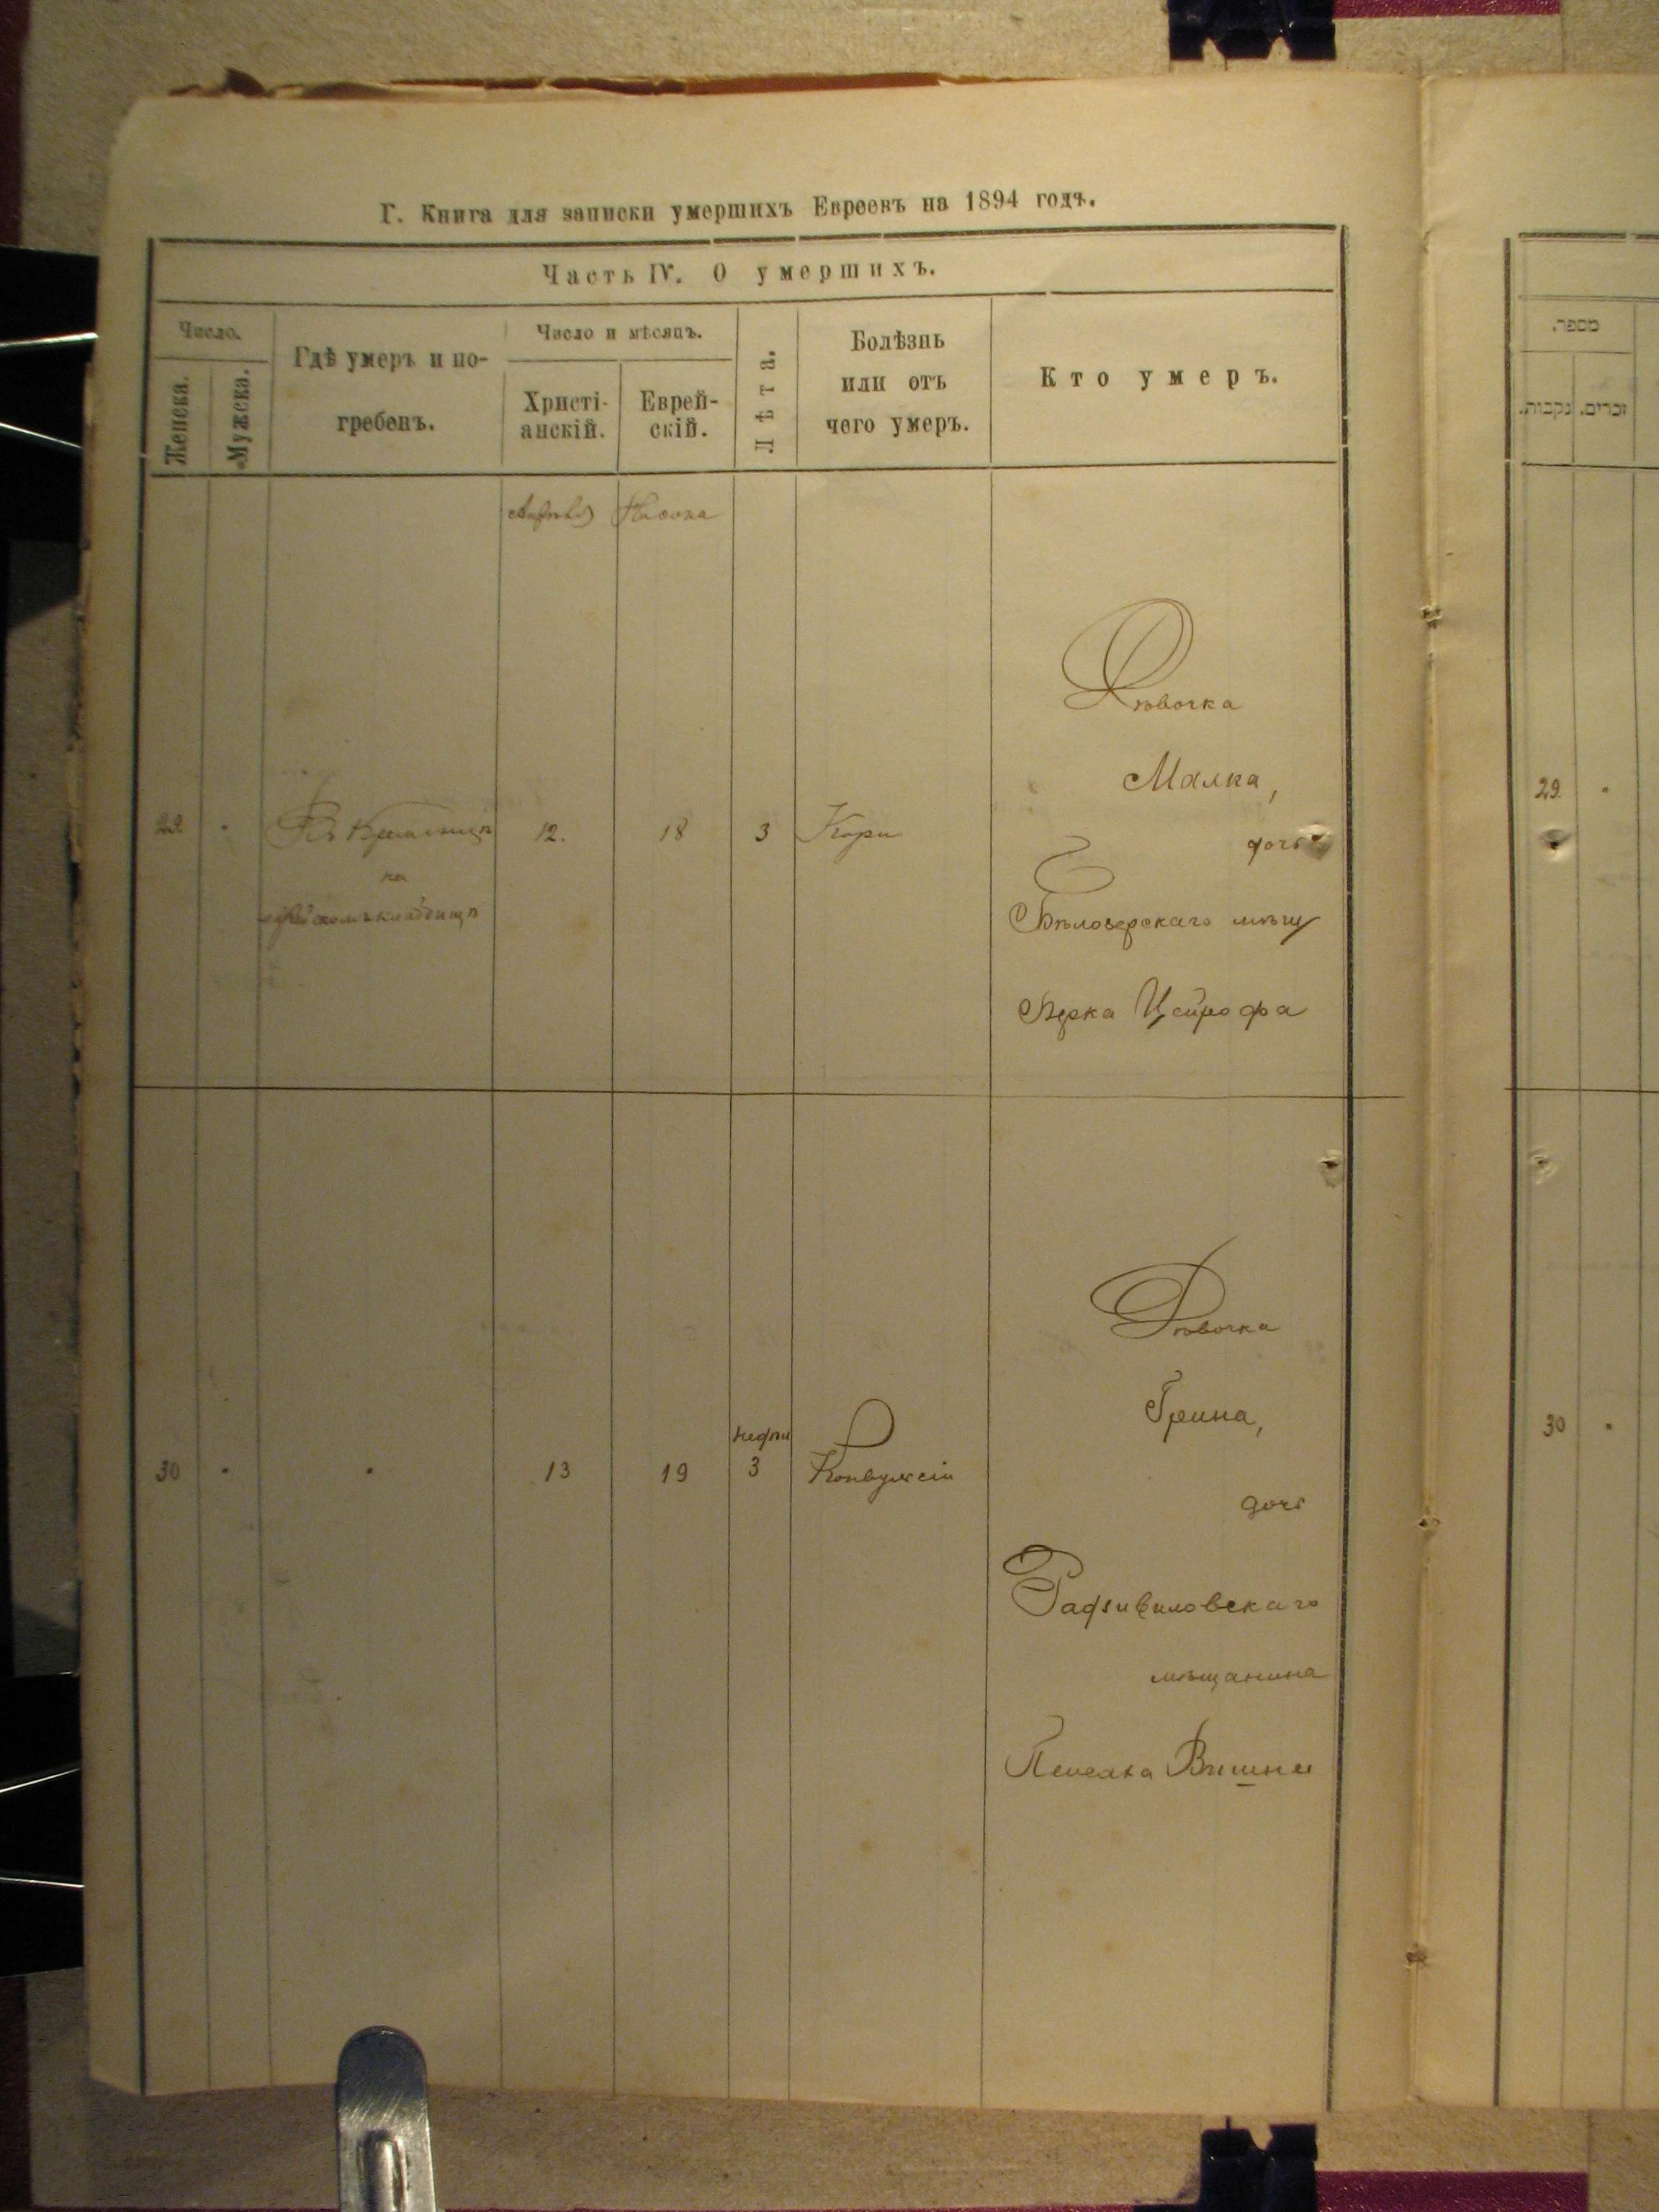 Г. Книга для записки умершихъ Евреевъ на 1894 годъ.
Часть IV. О умершихъ.
Число.
Женска.
Мужска.
Гдѣ умеръ и по-
гребенъ.
Число и мѣсяцъ.
Христі-
анскій.
Еврей-
скій.
Лѣта.
Болѣзнь
или отъ
чего умеръ.
Кто умеръ.
Нисона
29.
Въ Кременцѣ
на
еврейскомъ кладбищѣ
12.
18
3
Кори
Дѣвочка
Малка,
дочь
Бѣлозерскаго мѣщ
Берка Цейрофа
30
13
19
недѣли
3
Конвульсіи
Дѣвочка
Грина,
дочь
Радзивиловскаго
мѣщанина
Пейсаха Вишни
מספר.
נקבות.
זכרים.
29.
30